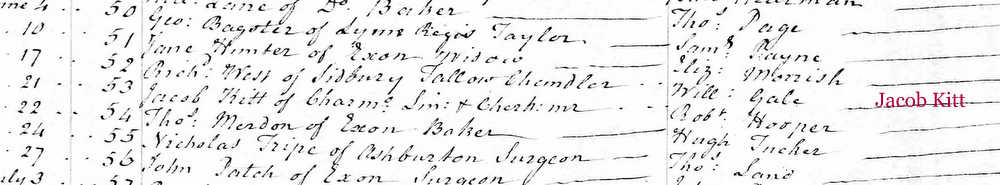 une 4 50 Lane of Do. Baker
10 51 Geo: Bagster of Lyme Regis Taylor Thos. Page
17 52 Jane Hunter of Exon Widow Saml. Payne
21 53 Richd. West of Sidbury Tallow Chandler Eliz: Morrish
22 54 Jacob Kitt of Charmo. Lin: & Will: Gale Jacob Kitt
24 55 Thos. Merdon of Exon Baker Robt. Hooper
27 56 Nicholas Tripe of Ashburton Surgeon Hugh Tucker
uly 3 57 John Patch of Exon Surgeon Thos. Land